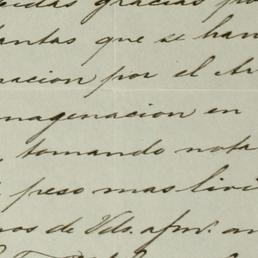 gracias
antas que se han
nacion por el
magenacion en
tomando nota
peso mas livi
os de Vds. afmo.